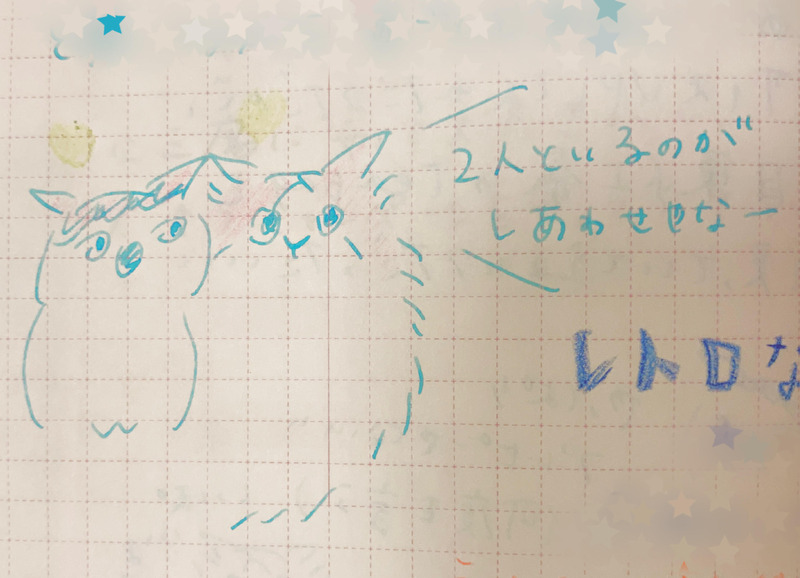 2人といるのが
しあわせやなー
レトロな